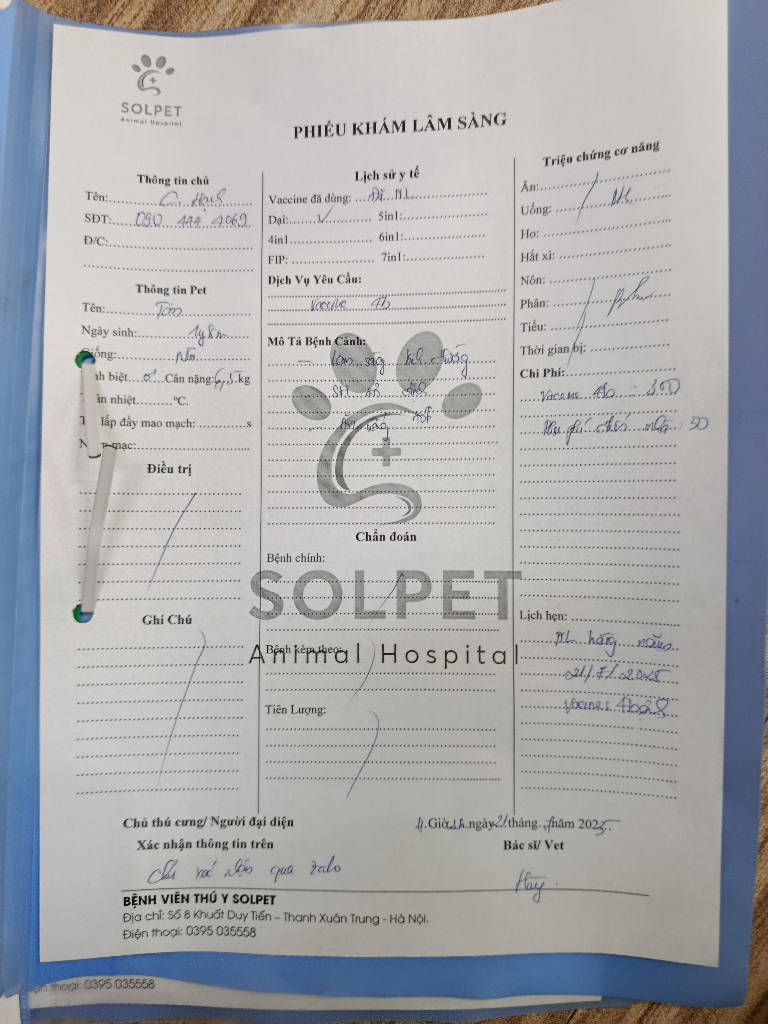 SOLPET
Animal Hospital
PHIẾU KHÁM LÂM SÀNG
Thông tin chủ
Tên: C.
SĐT: 090 444 4069
Đ/C:
Thông tin Pet
Tên:
Ngày sinh: 1y8m
Giống:
biệt ♂ Cân nặng: 6,5 kg
nhiệt °C.
lấp đầy mao mạch: s
mạc:
Điều trị
Ghi Chú
Lịch sử y tế
Vaccine đã dùng: NL
Dại: ✓ 5in1:
4in1 6in1:
FIP: 7in1:
Dịch Vụ Yêu Cầu:
Vaccine 4b
Mô Tả Bệnh Cảnh:
- lâm sàng bình thường
SH ổn định
Ăn uống tốt
Chẩn đoán
Bệnh chính:
SOLPET
Animal Hospital
Bệnh kèm theo:
Tiên Lượng:
Triệu chứng cơ năng
Ăn:
Uống:
Ho:
Hắt xì:
Nôn:
Phân:
Tiểu:
Thời gian bị:
Chi Phí:
Vaccine 4b: 350
Phụ phí nhà 50
Lịch hẹn:
NL hàng năm
21/7/2025
Vaccines
Chủ thú cưng/ Người đại diện
Xác nhận thông tin trên
xác nhận qua zalo
Giờ ngày 21 tháng 7 năm 2025
Bác sĩ/ Vet
Hùy
BỆNH VIỆN THÚ Y SOLPET
Địa chỉ: Số 8 Khuất Duy Tiến – Thanh Xuân Trung - Hà Nội.
Điện thoại: 0395 035558
thoại: 0395 035558